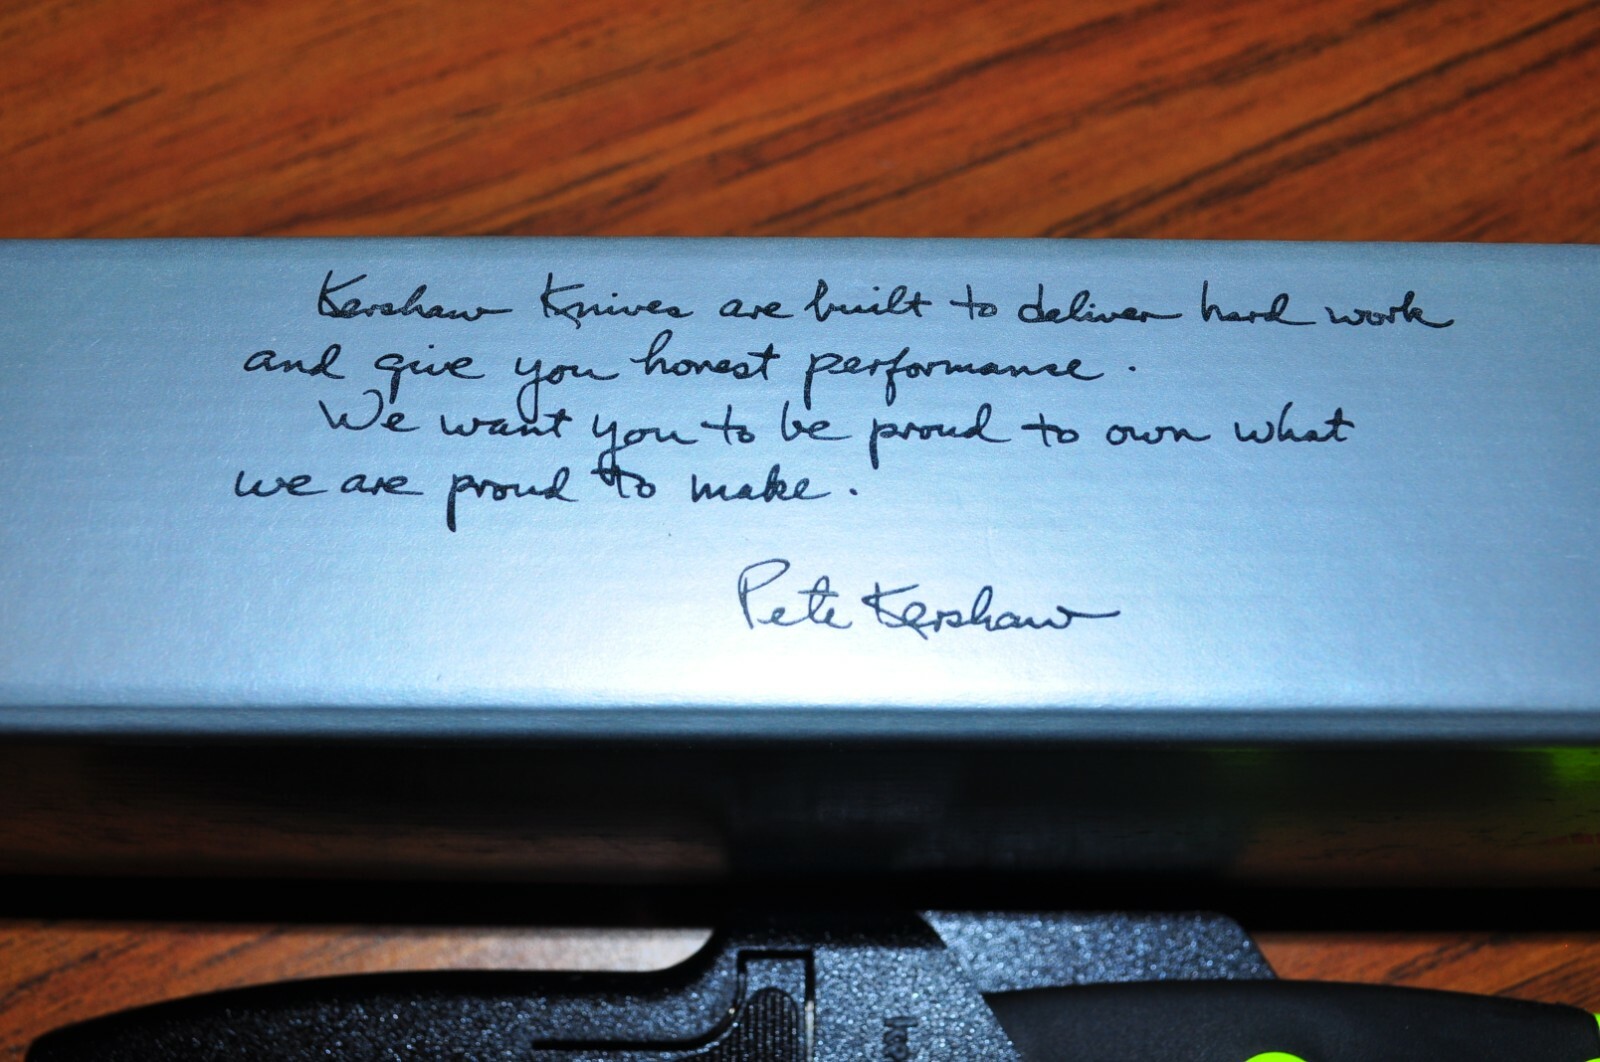 Kershaw Knives are built to deliver hard work
and give you honest performance.
We want you to be proud to own what
we are proud to make.
Pete Kershaw